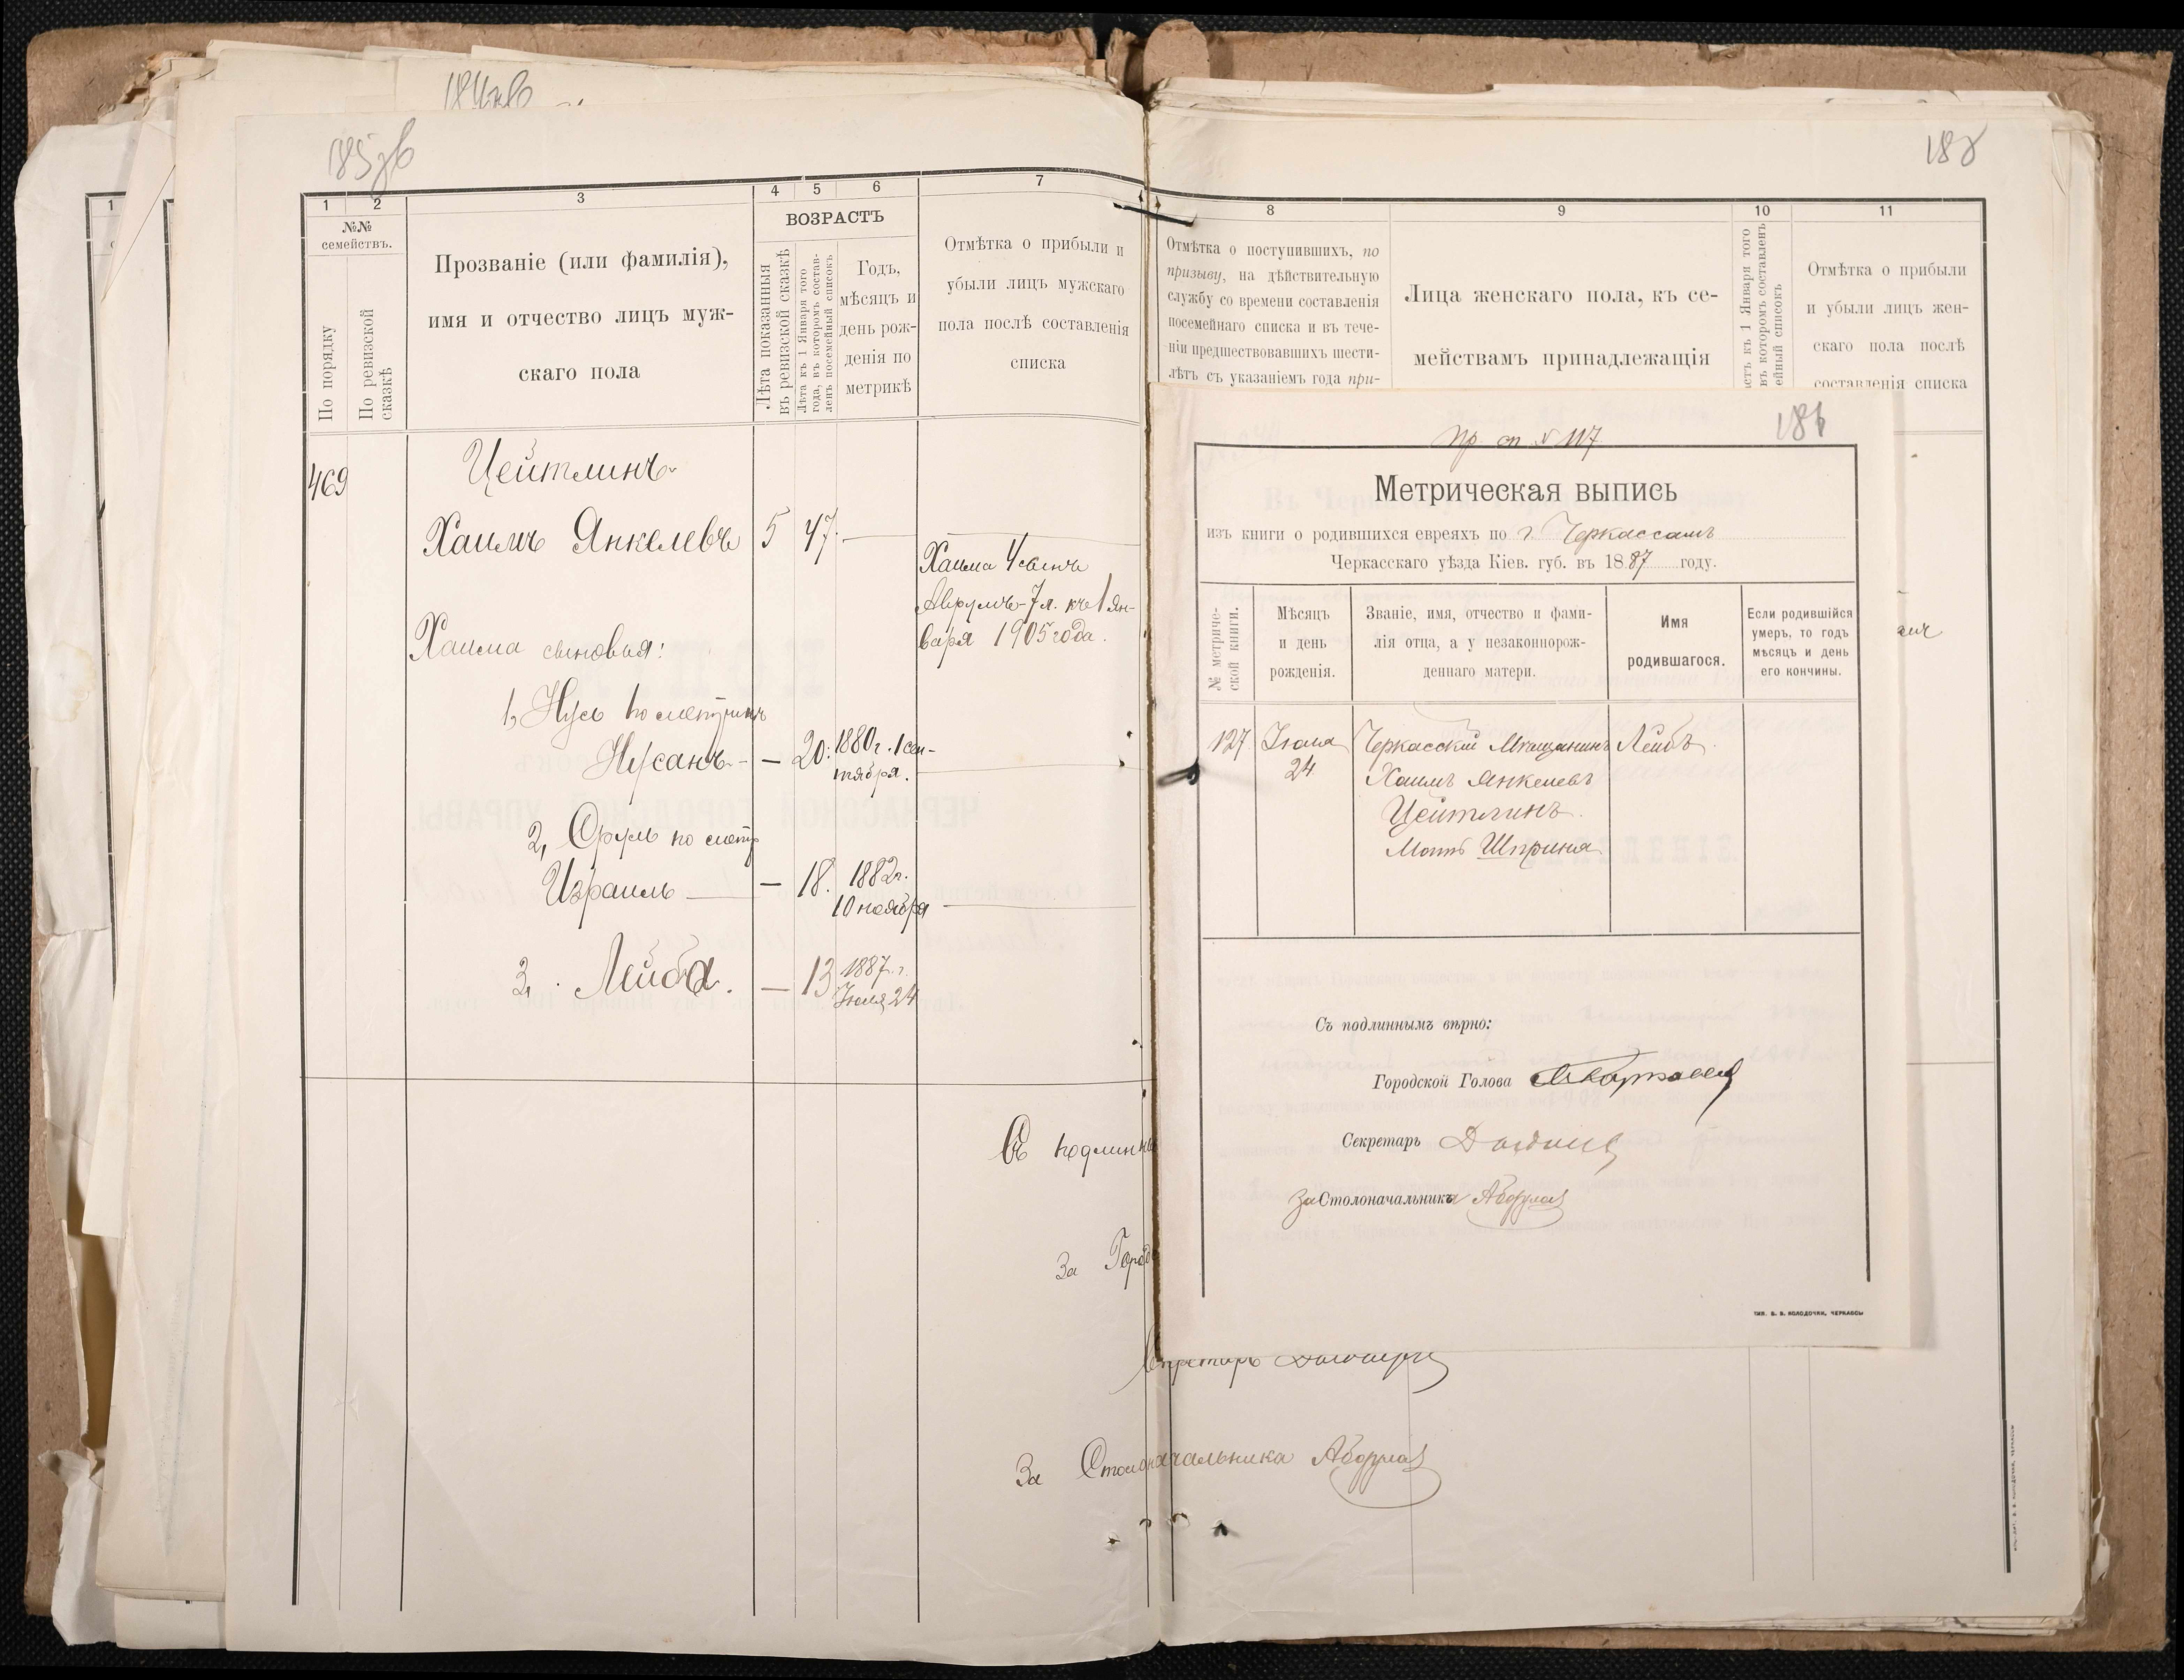 185зв
188
1
2
3
4
5
6
7
№№
семействъ.
По порядку
По ревизской
сказкѣ
Прозваніе (или фамилія),
имя и отчество лицъ муж-
скаго пола
ВОЗРАСТЪ
Лѣта показанныя
въ ревизской сказкѣ
Лѣта къ 1 Января того
года, въ которомъ состав-
ленъ посемейный списокъ
Годъ,
мѣсяцъ и
день рож-
денія по
метрикѣ
Отмѣтка о прибыли и
убыли лицъ мужскаго
пола послѣ составленія
списка
469
Цейтлинъ
Хаимъ Янкелевъ 5 47.
Хаима 4 сынъ
Аврумъ - 7 л. къ 1 Ян-
варя 1905 года.
Хаима сыновья:
1, Нусь по метрикѣ
Нусанъ - — 20. 1880 г. 1 сен-
тября.
2, Сруль по метр
Израиль — 18. 1882 г.
10 ноября
3, Лейба. — 13 1887 г.
Іюля 24
Съ подлинны
За Городс
Секретарь
За Столоначальника
8
9
10
11
Отмѣтка о поступившихъ, по
призыву, на дѣйствительную
службу со времени составленія
посемейнаго списка и въ тече-
ніи предшествовавшихъ шести-
лѣтъ съ указаніемъ года при-
Лица женскаго пола, къ се-
мействамъ принадлежащія
астъ къ 1 Января того
въ которомъ составленъ
ейный списокъ
Отмѣтка о прибыли
и убыли лицъ жен-
скаго пола послѣ
составленія списка
Пр. сп. № 117.
186
Метрическая выпись
изъ книги о родившихся евреяхъ по г. Черкассамъ
Черкасскаго уѣзда Кіев. губ. въ 1887 году.
№ метриче-
ской книги.
Мѣсяцъ
и день
рожденія.
Званіе, имя, отчество и фами-
лія отца, а у незаконнорож-
деннаго матери.
Имя
родившагося.
Если родившійся
умеръ, то годъ
мѣсяцъ и день
его кончины.
127 Іюля Черкасскій Мѣщанинъ Лейбъ.
24 Хаимъ Янкелевъ
Цейтлинъ.
Мать Шприня
Съ подлиннымъ вѣрно:
Городской Голова
Секретарь
за Столоначальника
ТИП. В. В. КОЛОДОЧКИ, ЧЕРКАССЫ